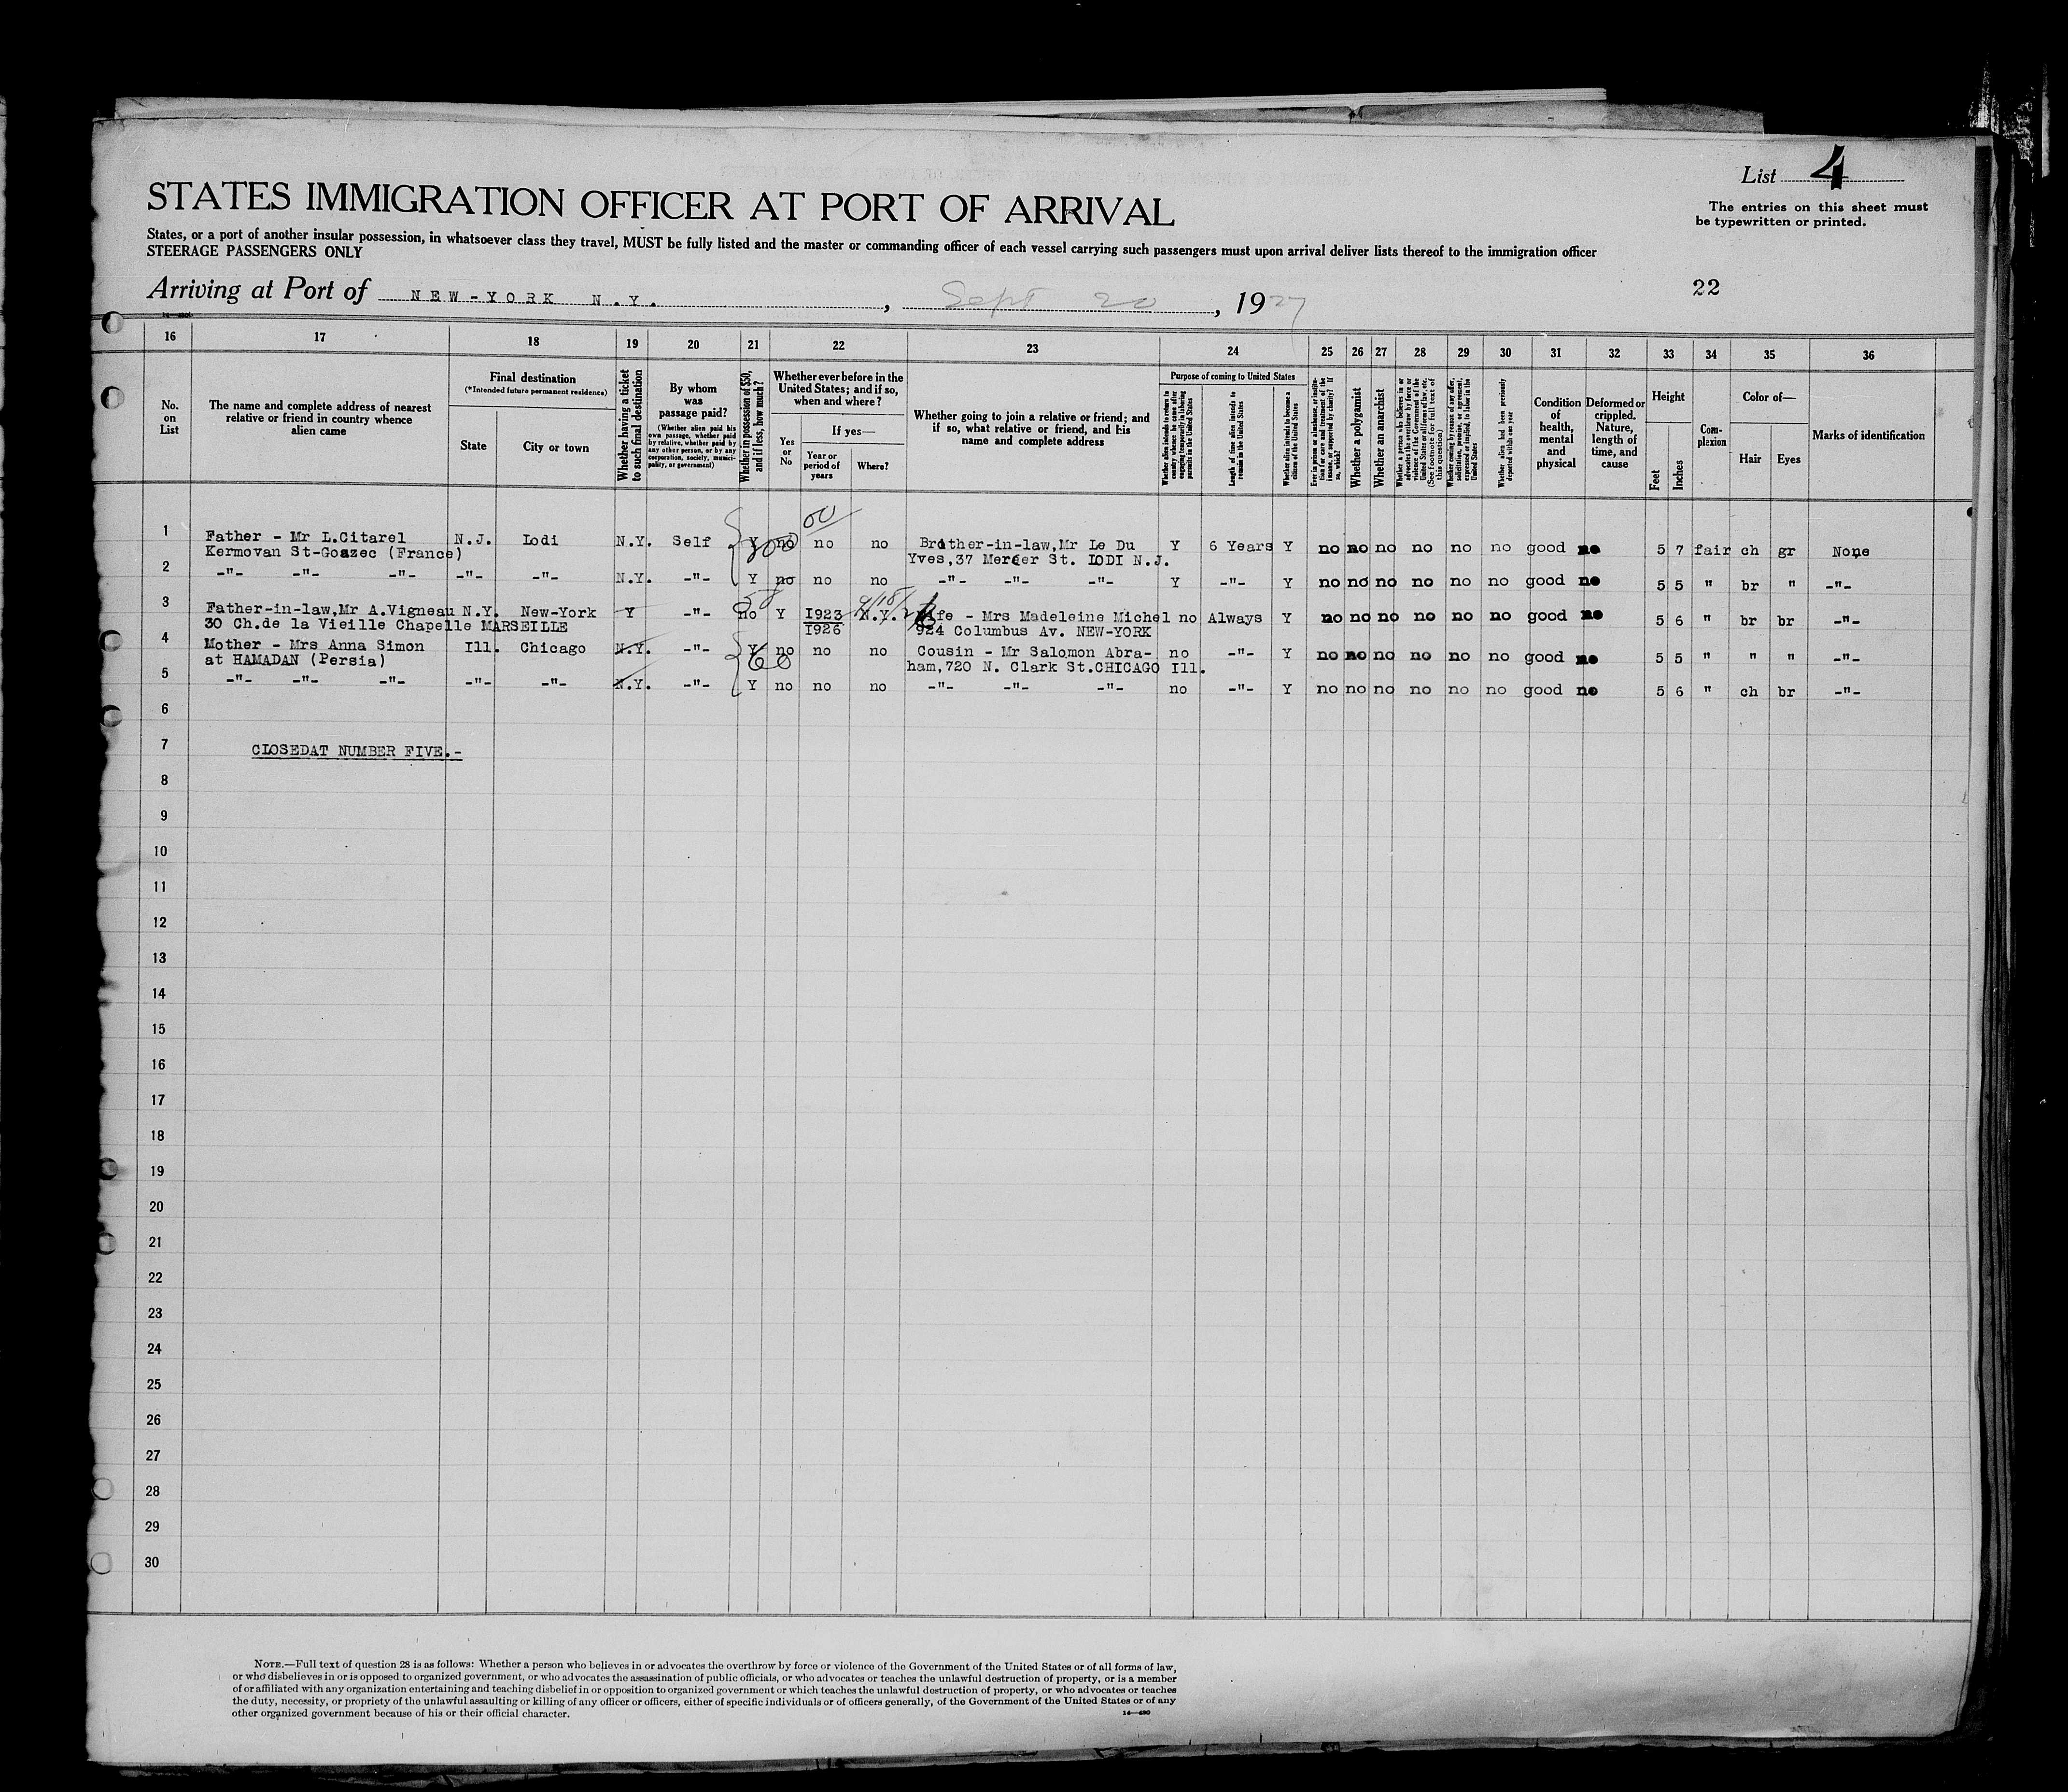 List 4
STATES IMMIGRATION OFFICER AT PORT OF ARRIVAL
The entries on this sheet must
be typewritten or printed.
States, or a port of another insular possession, in whatsoever class they travel, MUST be fully listed and the master or commanding officer of each vessel carrying such passengers must upon arrival deliver lists thereof to the immigration officer
STEERAGE PASSENGERS ONLY
Arriving at Port of NEW-YORK N.Y. , Sept 20 , 1927
22
16 17 18 19 20 21 22 23 24 25 26 27 28 29 30 31 32 33 34 35 36
No. on List
The name and complete address of nearest relative or friend in country whence alien came
Final destination
(*Intended future permanent residence)
State
City or town
Whether having a ticket to such final destination
By whom was passage paid?
(Whether alien paid his own passage, whether paid by relative, whether paid by any other person, or by any corporation, society, municipality, or government)
Whether in possession of $50, and if less, how much?
Whether ever before in the United States; and if so, when and where?
Yes or No
If yes—
Year or period of years
Where?
Whether going to join a relative or friend; and if so, what relative or friend, and his name and complete address
Purpose of coming to United States
Whether alien intends to return to country whence he came after engaging temporarily in laboring pursuits in the United States
Length of time alien intends to remain in the United States
Whether alien intends to become a citizen of the United States
Ever in prison or almshouse, or institution for care and treatment of the insane, or supported by charity? If so, which?
Whether a polygamist
Whether an anarchist
Whether a person who believes in or advocates the overthrow by force or violence of the Government of the United States or all forms of law, etc. (See footnote for full text of this question)
Whether coming by reason of any offer, solicitation, promise, or agreement, expressed or implied, to labor in the United States
Whether alien had been previously deported within one year
Condition of health, mental and physical
Deformed or crippled. Nature, length of time, and cause
Height
Feet
Inches
Complexion
Color of—
Hair
Eyes
Marks of identification
1 Father - Mr L.Citarel N.J. Lodi N.Y. Self Y no no no Brother-in-law,Mr Le Du Y 6 Years Y no no no no no no good no 5 7 fair ch gr None
Kermovan St-Goazec (France) Yves,37 Mercer St. LODI N.J.
2 -"- -"- -"- -"- -"- N.Y. -"- Y no no no -"- -"- -"- Y -"- Y no no no no no no good no 5 5 " br " -"-
3 Father-in-law,Mr A.Vigneau N.Y. New-York Y -"- no Y 1923 N.Y. Wife - Mrs Madeleine Michel no Always Y no no no no no no good no 5 6 " br br -"-
30 Ch.de la Vieille Chapelle MARSEILLE 1926 924 Columbus Av. NEW-YORK
4 Mother - Mrs Anna Simon Ill. Chicago N.Y. -"- Y no no no Cousin - Mr Salomon Abra- no -"- Y no no no no no no good no 5 5 " " " -"-
at HAMADAN (Persia) 60 ham,720 N. Clark St.CHICAGO Ill.
5 -"- -"- -"- -"- -"- N.Y. -"- Y no no no -"- -"- -"- no -"- Y no no no no no no good no 5 6 " ch br -"-
6
7 CLOSEDAT NUMBER FIVE.-
8
9
10
11
12
13
14
15
16
17
18
19
20
21
22
23
24
25
26
27
28
29
30
NOTE.—Full text of question 28 is as follows: Whether a person who believes in or advocates the overthrow by force or violence of the Government of the United States or of all forms of law,
or who disbelieves in or is opposed to organized government, or who advocates the assassination of public officials, or who advocates or teaches the unlawful destruction of property, or is a member
of or affiliated with any organization entertaining and teaching disbelief in or opposition to organized government or which teaches the unlawful destruction of property, or who advocates or teaches
the duty, necessity, or propriety of the unlawful assaulting or killing of any officer or officers, either of specific individuals or of officers generally, of the Government of the United States or of any
other organized government because of his or their official character.
14—430